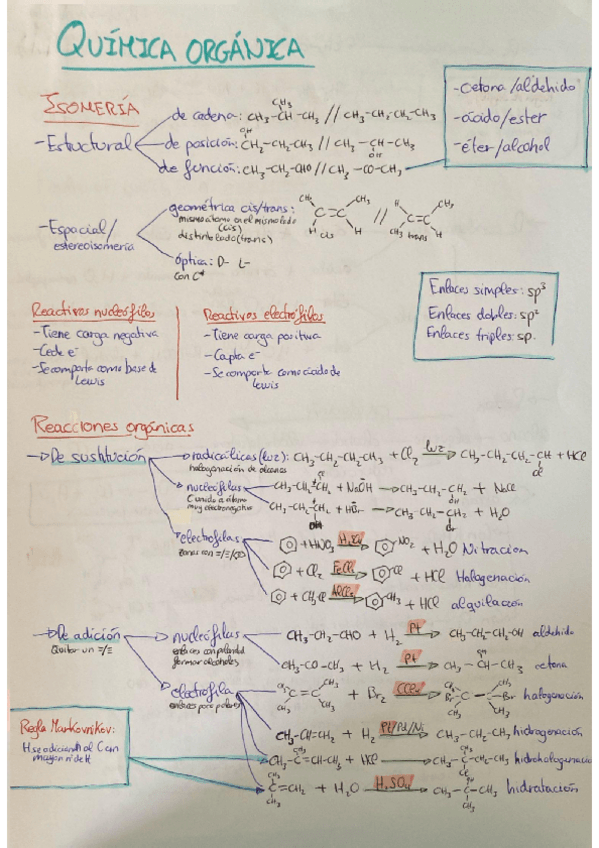 QUÍMICA ORGÁNICA
ISOMERÍA
-Estructural
de cadena: CH₃-CH-CH₃ // CH₃-CH₂-CH₂-CH₃
CH₃
de posición: CH₂-CH₂-CH₃ // CH₃-CH-CH₃
OH
OH
de función: CH₃-CH₂-CHO // CH₃-CO-CH₃
-cetona/aldehido
-ácido/ester
-éter/alcohol
-Espacial/
estereoisomería
geométrica cis/trans:
mismo átomo en el mismo lado
(cis)
distinto lado (trans)
CH₃ CH₃
C=C
H cis H
//
H CH₃
C=C
CH₃ trans H
óptica: D- L-
con C*
Enlaces simples: sp³
Enlaces dobles: sp²
Enlaces triples: sp.
Reactivos nucleófilos
-Tiene carga negativa
-Cede e⁻
-Se comporta como base de
Lewis
Reactivos electrófilos
-Tiene carga positiva
-Capta e⁻
-Se comporta como ácido de
Lewis
Reacciones orgánicas
De sustitución
radicálicas (luz): CH₃-CH₂-CH₂-CH₃ + Cl₂ luz CH₃-CH₂-CH₂-CH + HCl
Cl
halogenación de alcanos
nucleófilas
C unido a átomo
muy electronegativo
CH₃-CH₂ + NaOH CH₃-CH₂-CH₂ + NaCl
OH
CH₃-CH₂-CH₂ + HBr CH₃-CH₂-CH₂ + H₂O
OH
Br
electrófilas
+ HNO₃ H₂SO₄ NO₂ + H₂O Nitración
+ Cl₂ FeCl₃ Cl + HCl Halogenación
+ CH₃Cl AlCl₃ CH₃ + HCl alquilación
De adición
Quitar un =/≡
nucleófilas
enlaces con polaridad
formar alcoholes
CH₃-CH₂-CHO + H₂ Pt CH₃-CH₂-CH₂-OH aldehido
CH₃-CO-CH₃ + H₂ Pt CH₃-CH-CH₃ cetona
OH
electrófila
enlaces poco polares
CH₃ CH₃
C=C + Br₂ CCl₄ Br-C-C-Br halogenación
CH₃ CH₃
CH₃-CH=CH₂ + H₂ Pt/Pd/Ni CH₃-CH₂-CH₃ hidrogenación
Regla Markovnikov:
H se adiciona al C con
mayor nº de H
CH₃-C=CH-CH₃ + HCl CH₃-C-CH₂-CH₃ hidrohalogenación
C=CH₂ + H₂O H₂SO₄ CH₃-C-CH₃ hidratación